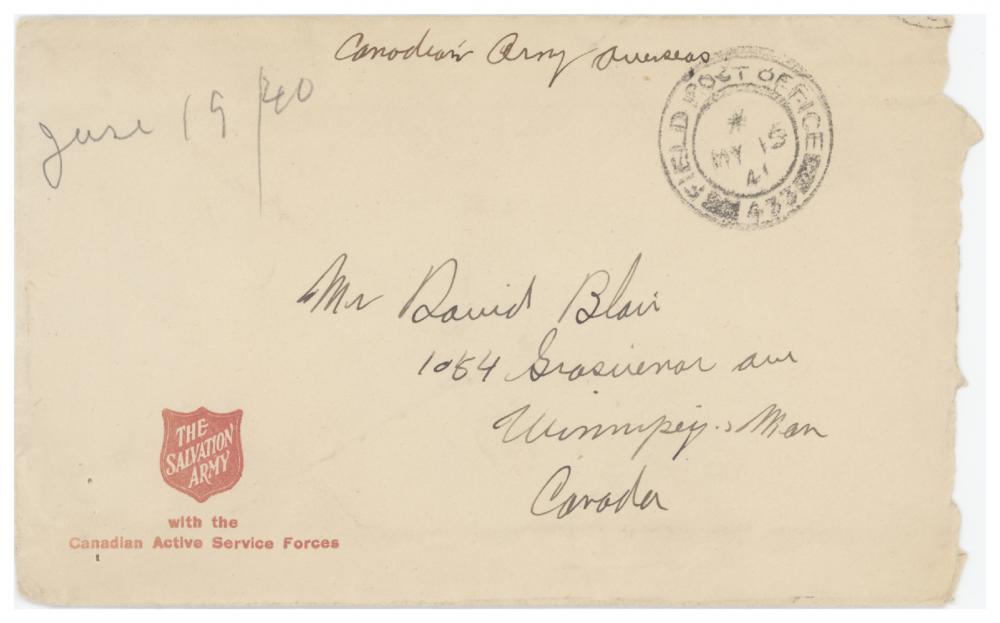 Canadian Army overseas
June 19/40
FIELD POST OFFICE
MY 15
41
433
Mr David Blair
1064 Grosvenor ave
Winnipeg, Man
Canada
THE
SALVATION
ARMY
with the
Canadian Active Service Forces